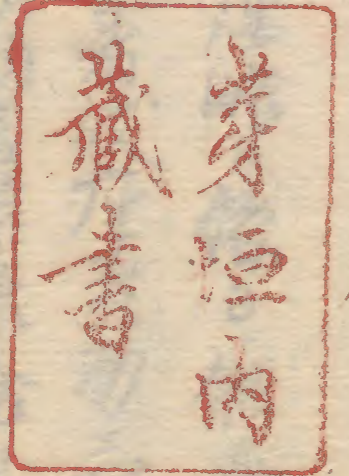 芽垣内
藏書